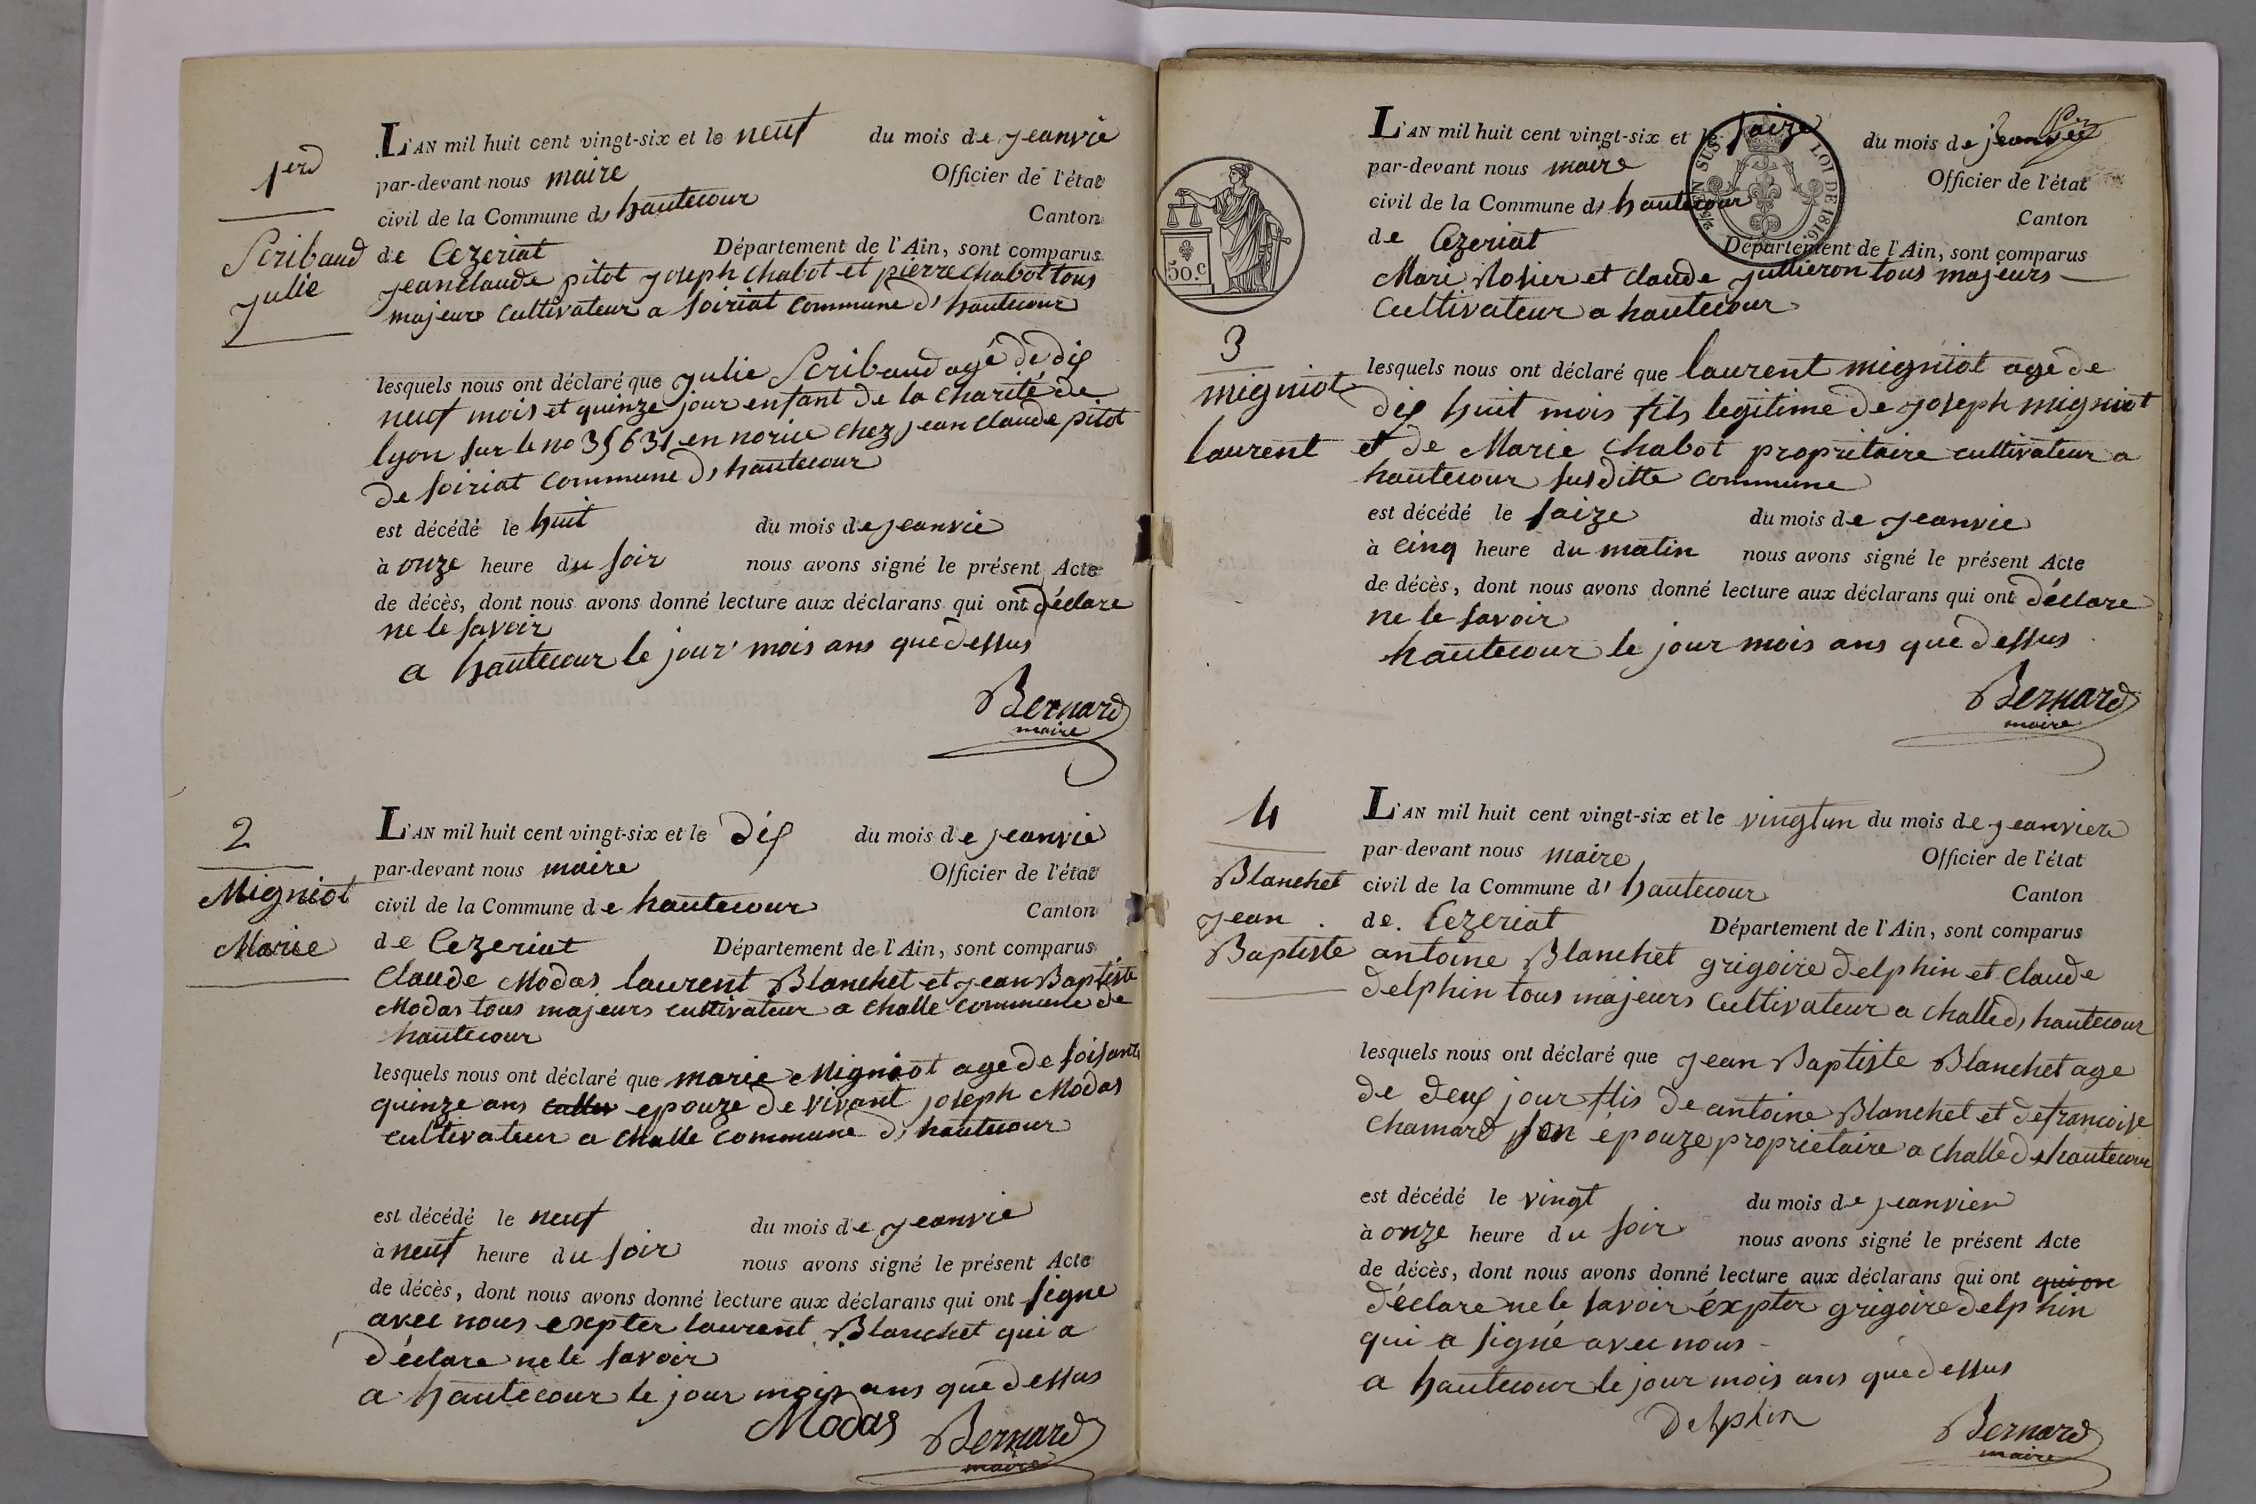 1er
Scribaud
Julie
L'AN mil huit cent vingt-six et le neuf du mois de jeanvie
par-devant nous maire Officier de l'état
civil de la Commune d, hautecour Canton
de Cezeriat Département de l'Ain, sont comparus
jean claude pitot joseph chabot et pierre chabot tous
majeurs cultivateur a soiriat commune d, hautecour
lesquels nous ont déclaré que julie Scribaud agé de dix
neuf mois et quinze jour enfant de la charité de
lyon sur le no 35631 en norice chez jean claude pitot
de soiriat commune d, hautecour
est décédé le huit du mois de jeanvie
à onze heure du soir nous avons signé le présent Acte
de décès, dont nous avons donné lecture aux déclarans qui ont déclare
ne le savoir
a hautecour le jour mois ans que dessus
Bernard
maire
2
Migniot
Marie
L'AN mil huit cent vingt-six et le dix du mois de jeanvie
par-devant nous maire Officier de l'état
civil de la Commune de hautecour Canton
de Cezeriat Département de l'Ain, sont comparus
claude Modas laurent Blanchet et jean Baptiste
Modas tous majeurs cultivateur a challe commune de
hautecour
lesquels nous ont déclaré que marie Migniot age de soisante
quinze ans epouze de vivant joseph Modas
cultivateur a challe commune d, hautecour
est décédé le neuf du mois de jeanvie
à neuf heure du soir nous avons signé le présent Acte
de décès, dont nous avons donné lecture aux déclarans qui ont signe
avec nous expter laurent Blanchet qui a
déclare ne le savoir
a hautecour le jour mois ans que dessus
Modas Bernard
maire
SUS LOI DE 1816.
50.c
3
migniot
laurent
L'AN mil huit cent vingt-six et le saize du mois de jeanvier
par-devant nous maire Officier de l'état
civil de la Commune d, hautecour Canton
de Cezeriat Département de l'Ain, sont comparus
Mari Rosier et claude jullieron tous majeurs
cultivateur a hautecour
lesquels nous ont déclaré que laurent migniot age de
dix huit mois fils legitime de joseph migniot
et de Marie chabot propriitaire cultivateur a
hautecour susditte commune
est décédé le saize du mois de jeanvie
à cinq heure du matin nous avons signé le présent Acte
de décès, dont nous avons donné lecture aux déclarans qui ont déclare
ne le savoir
hautecour le jour mois ans que dessus
Bernard
maire
4
Blanchet
jean
Baptiste
L'AN mil huit cent vingt-six et le vingt un du mois de jeanvier
par-devant nous maire Officier de l'état
civil de la Commune d' hautecour Canton
de Cezeriat Département de l'Ain, sont comparus
antoine Blanchet grigoire delphin et claude
delphin tous majeurs cultivateur a challe d, hautecour
lesquels nous ont déclaré que jean Baptiste Blanchet age
de deux jour flis de antoine Blanchet et de francoise
chamard son épouze proprietaire a challe d, hautecour
est décédé le vingt du mois de jeanvier
à onze heure du soir nous avons signé le présent Acte
de décès, dont nous avons donné lecture aux déclarans qui ont qui on
déclare ne le savoir éxpter grigoire delphin
qui a signé avec nous
a hautecour le jour mois ans que dessus
Delphin Bernard
maire